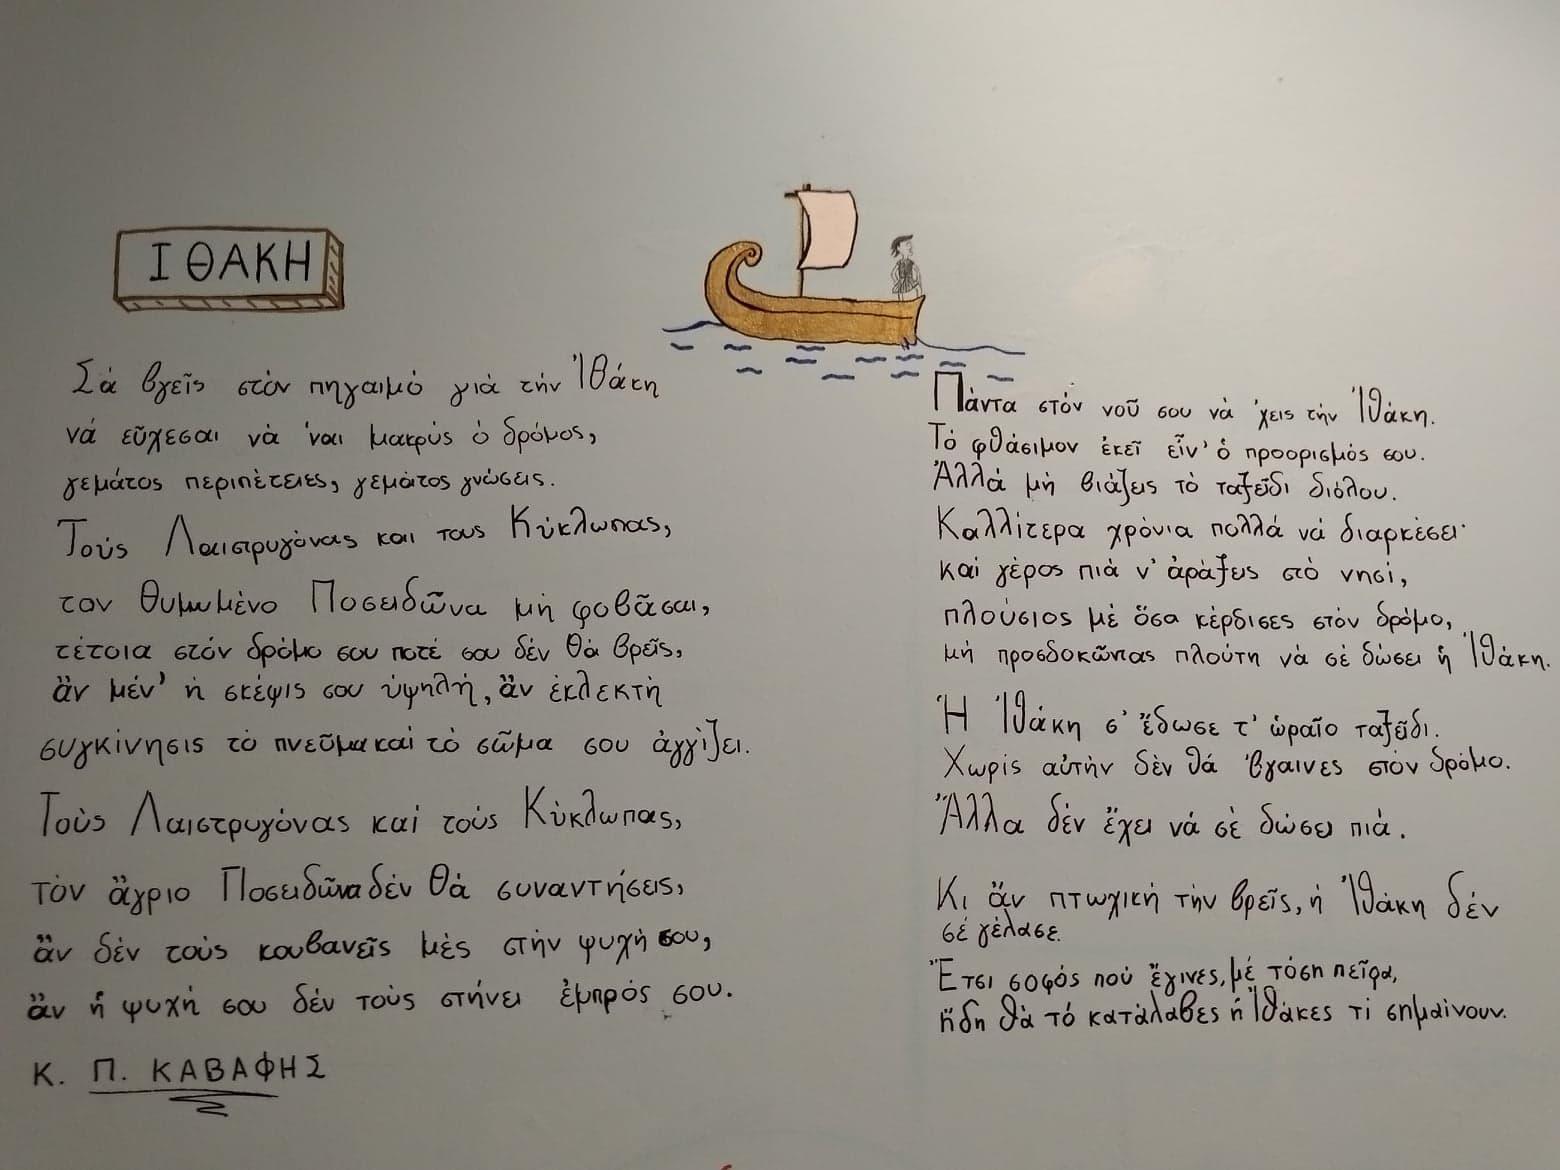 ΙΘΑΚΗ
Σά βγεῖς στόν πηγαιμό γιά τήν Ἰθάκη
νά εὔχεσαι νὰ 'ναι μακρύς ὁ δρόμος,
γεμάτος περιπέτειες, γεμάτος γνώσεις.
Τούς Λαιστρυγόνας και τους Κύκλωπας,
τον θυμωμένο Ποσειδῶνα μή φοβᾶσαι,
τέτοια στόν δρόμο σου ποτέ σου δέν θά βρεῖς,
ἂν μέν' ἡ σκέψις σου ὑψηλή, ἂν ἐκλεκτή
συγκίνησις τὸ πνεῦμα καί τὸ σῶμα σου ἀγγίζει.
Τοὺς Λαιστρυγόνας καί τούς Κύκλωπας,
τὸν ἄγριο Ποσειδῶνα δέν θά συναντήσεις,
ἂν δέν τούς κουβανεῖς μὲς στήν ψυχή σου,
ἂν ἡ ψυχή σου δέν τοὺς στήνει ἐμπρός σου.
Κ. Π. ΚΑΒΑΦΗΣ
Πάντα στόν νοῦ σου νὰ 'χεις τήν Ἰθάκη.
Τὸ φθάσιμον ἐκεῖ εἶν' ὁ προορισμός σου.
Ἀλλά μή βιάζεις τὸ ταξεῖδι διόλου.
Καλλίτερα χρόνια πολλά νά διαρκέσει·
καί γέρος πιά ν' ἀράξεις στό νησί,
πλούσιος μέ ὅσα κέρδισες στόν δρόμο,
μή προσδοκῶντας πλούτη νὰ σέ δώσει ἡ Ἰθάκη.
Ἡ Ἰθάκη σ' ἔδωσε τ' ὡραῖο ταξεῖδι.
Χωρίς αὐτήν δὲν θά 'βγαινες στόν δρόμο.
Ἄλλα δέν ἔχει νά σὲ δώσει πιά.
Κι ἄν πτωχική τήν βρεῖς, ἡ Ἰθάκη δέν
σέ γέλασε.
Ἔτσι σοφός πού ἔγινες, μέ τόση πεῖρα,
ἤδη θὰ τό κατάλαβες ἡ Ἰθάκες τί σημαίνουν.